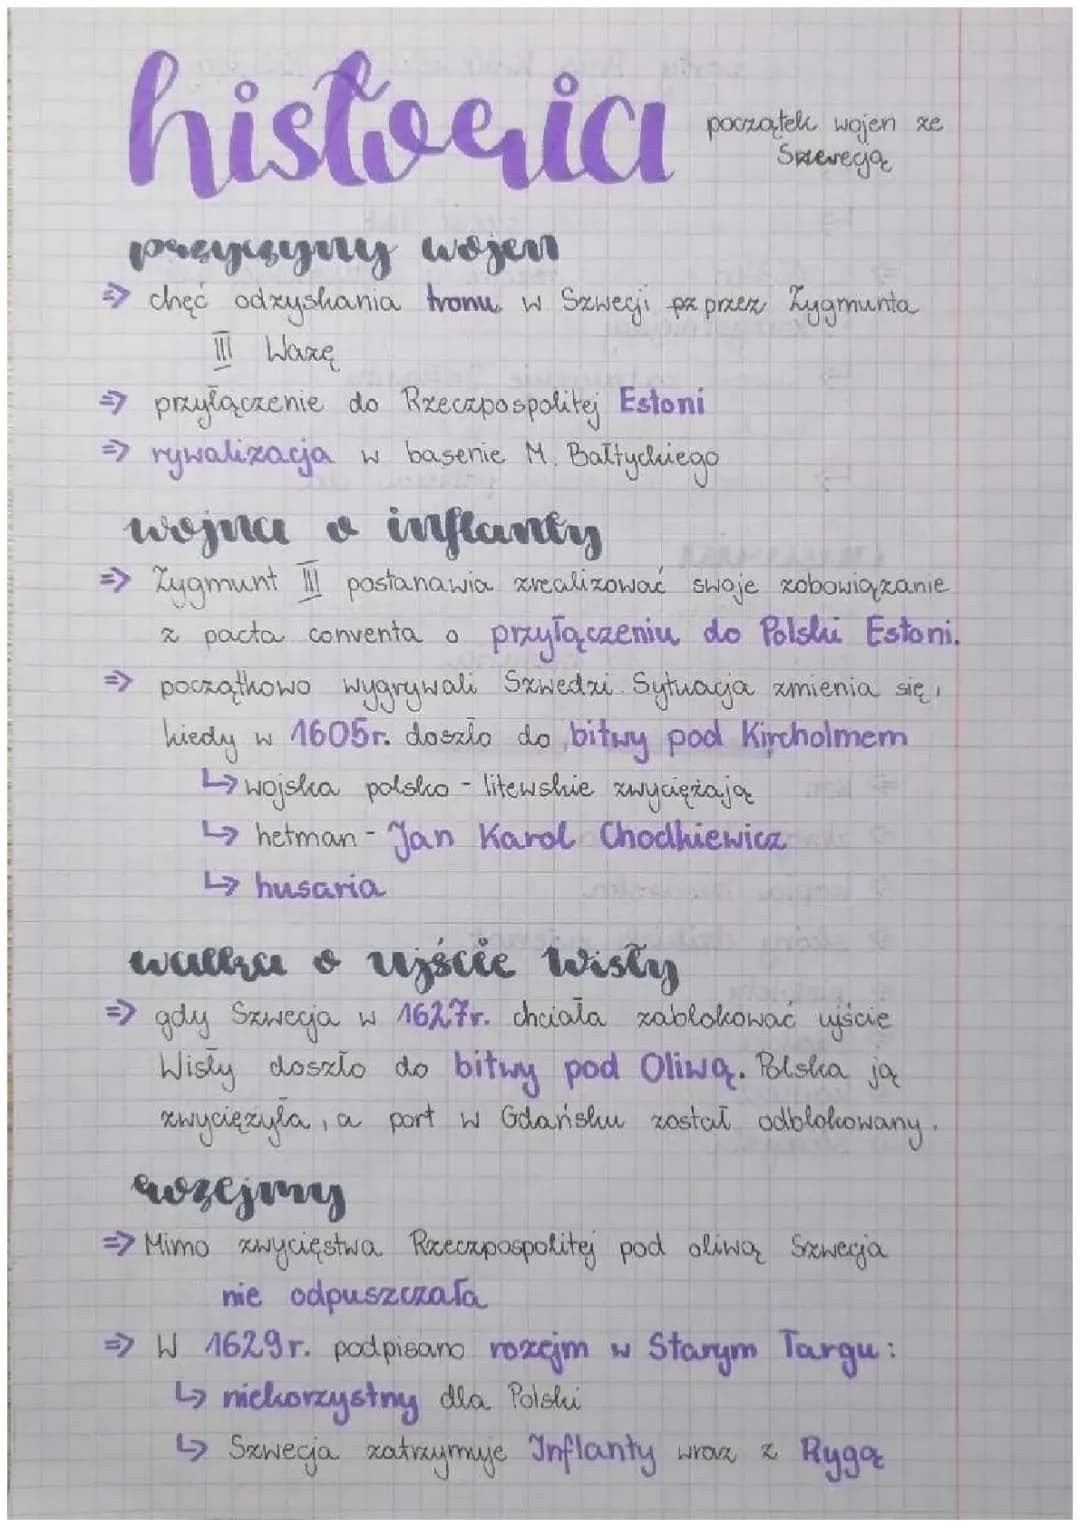 historia
początek wojen ze
Szwecją
przyczyny wojen
=> chęć odzyskania tronu w Szwecji pz przez Zygmunta
III Wazę
=> przyłączenie do Rzeczpospolitej Estoni
=> rywalizacja w basenie M. Bałtyckiego
wojna o inflanty
=> Zygmunt III postanawia zrealizować swoje zobowiązanie
z pacta conventa o przyłączeniu do Polski Estoni.
=> początkowo wygrywali Szwedzi. Sytuacja zmienia się,
kiedy w 1605r. doszło do bitwy pod Kircholmem
↳ wojska polsko - litewskie zwyciężają
↳ hetman - Jan Karol Chodkiewicz
↳ husaria
walka o ujście Wisły
=> gdy Szwecja w 1627r. chciała zablokować ujście
Wisły doszło do bitwy pod Oliwą. Polska ją
zwyciężyła, a port w Gdańsku został odblokowany.
rozejmy
=> Mimo zwycięstwa Rzeczpospolitej pod oliwą Szwecja
nie odpuszczała
=> W 1629r. podpisano rozejm w Starym Targu:
↳ niekorzystny dla Polski
↳ Szwecja zatrzymuje Inflanty wraz z Rygą